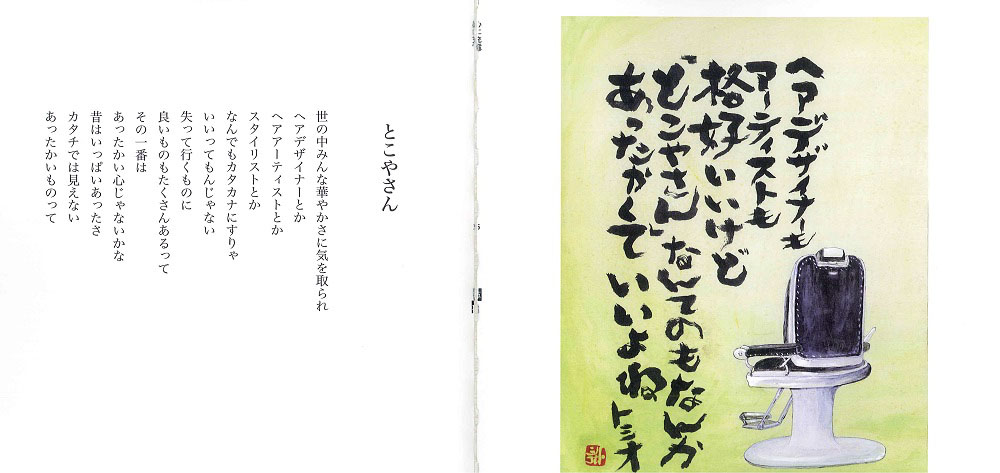 ヘアデザイナーも
アーティストも
格好いいけど
「とこやさん」なんてのもなんか
あったかくていいよね トミオ
とこやさん
世の中みんな華やかさに気を取られ
ヘアデザイナーとか
ヘアアーティストとか
スタイリストとか
なんでもカタカナにすりゃ
いいってもんじゃない
失って行くものに
良いものもたくさんあるって
その一番は
あったかい心じゃないかな
昔はいっぱいあったさ
カタチでは見えない
あったかいものって